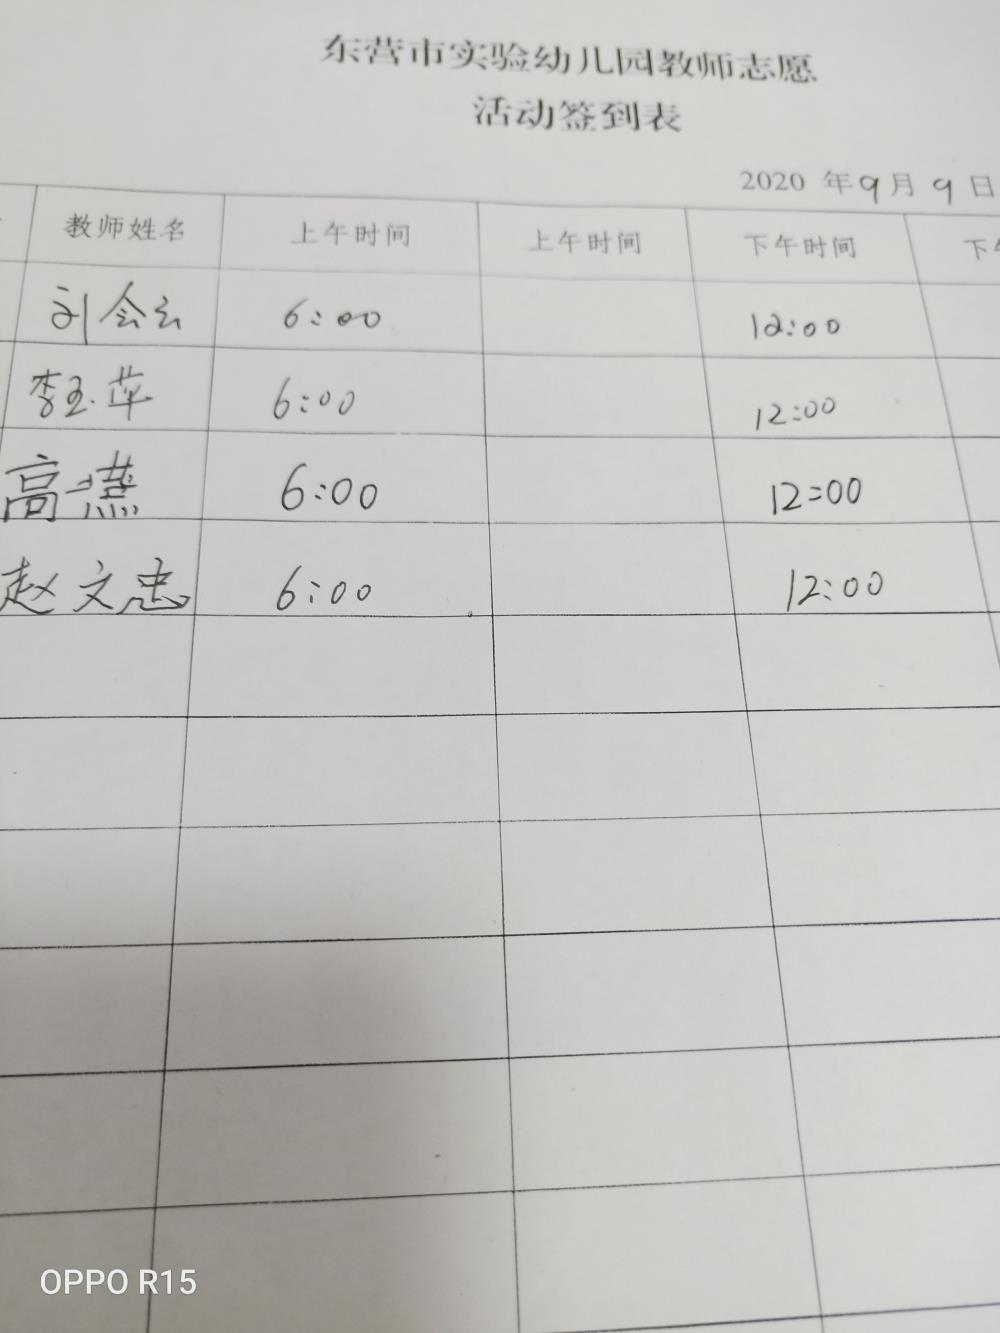 东营市实验幼儿园教师志愿
活动签到表
2020 年 9 月 9 日
教师姓名 上午时间 上午时间 下午时间 下午
刘会云 6:00 12:00
李玉萍 6:00 12:00
高燕 6:00 12:00
赵文忠 6:00 12:00
OPPO R15